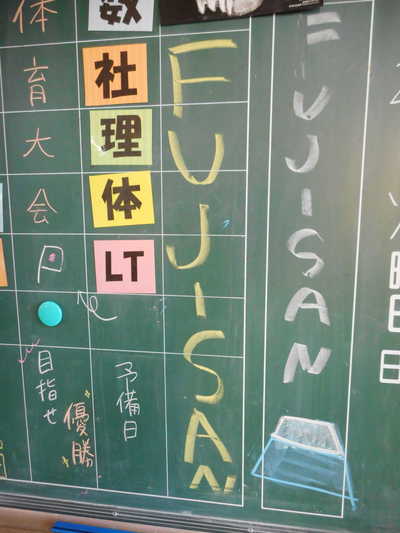 FUJISAN
FUJISAN
数
社
理
体
LT
予備日
体育大会
P
目指せ
優勝
曜日